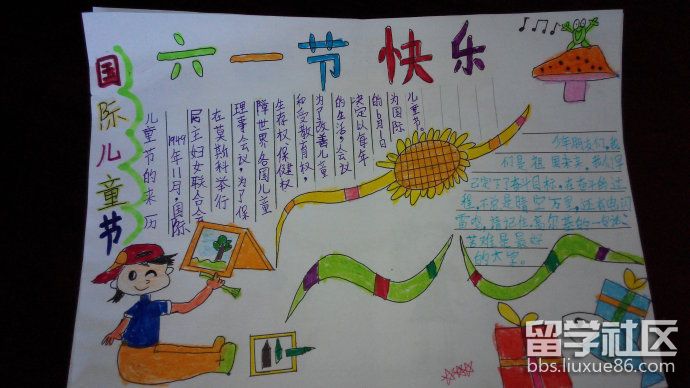 六一节 快乐
国际儿童节
儿童节的来历
1949年11月,国际
民主妇女联合会
在莫斯科举行
理事会议,为了保
障世界各国儿童
生存权、保健权
和受教育权,
为了改善儿童
的生活,会议
决定以每年
的6月1日
为国际
儿童节。
少年朋友们,我
们是祖国未来,我们
已定下了奋斗目标,在奋斗的过
程,不只是晴空万里,还有电闪
雷鸣,请记住高尔基的一句话:
苦难是最好
的大学。
留学社区
bbs.liuxue86.com